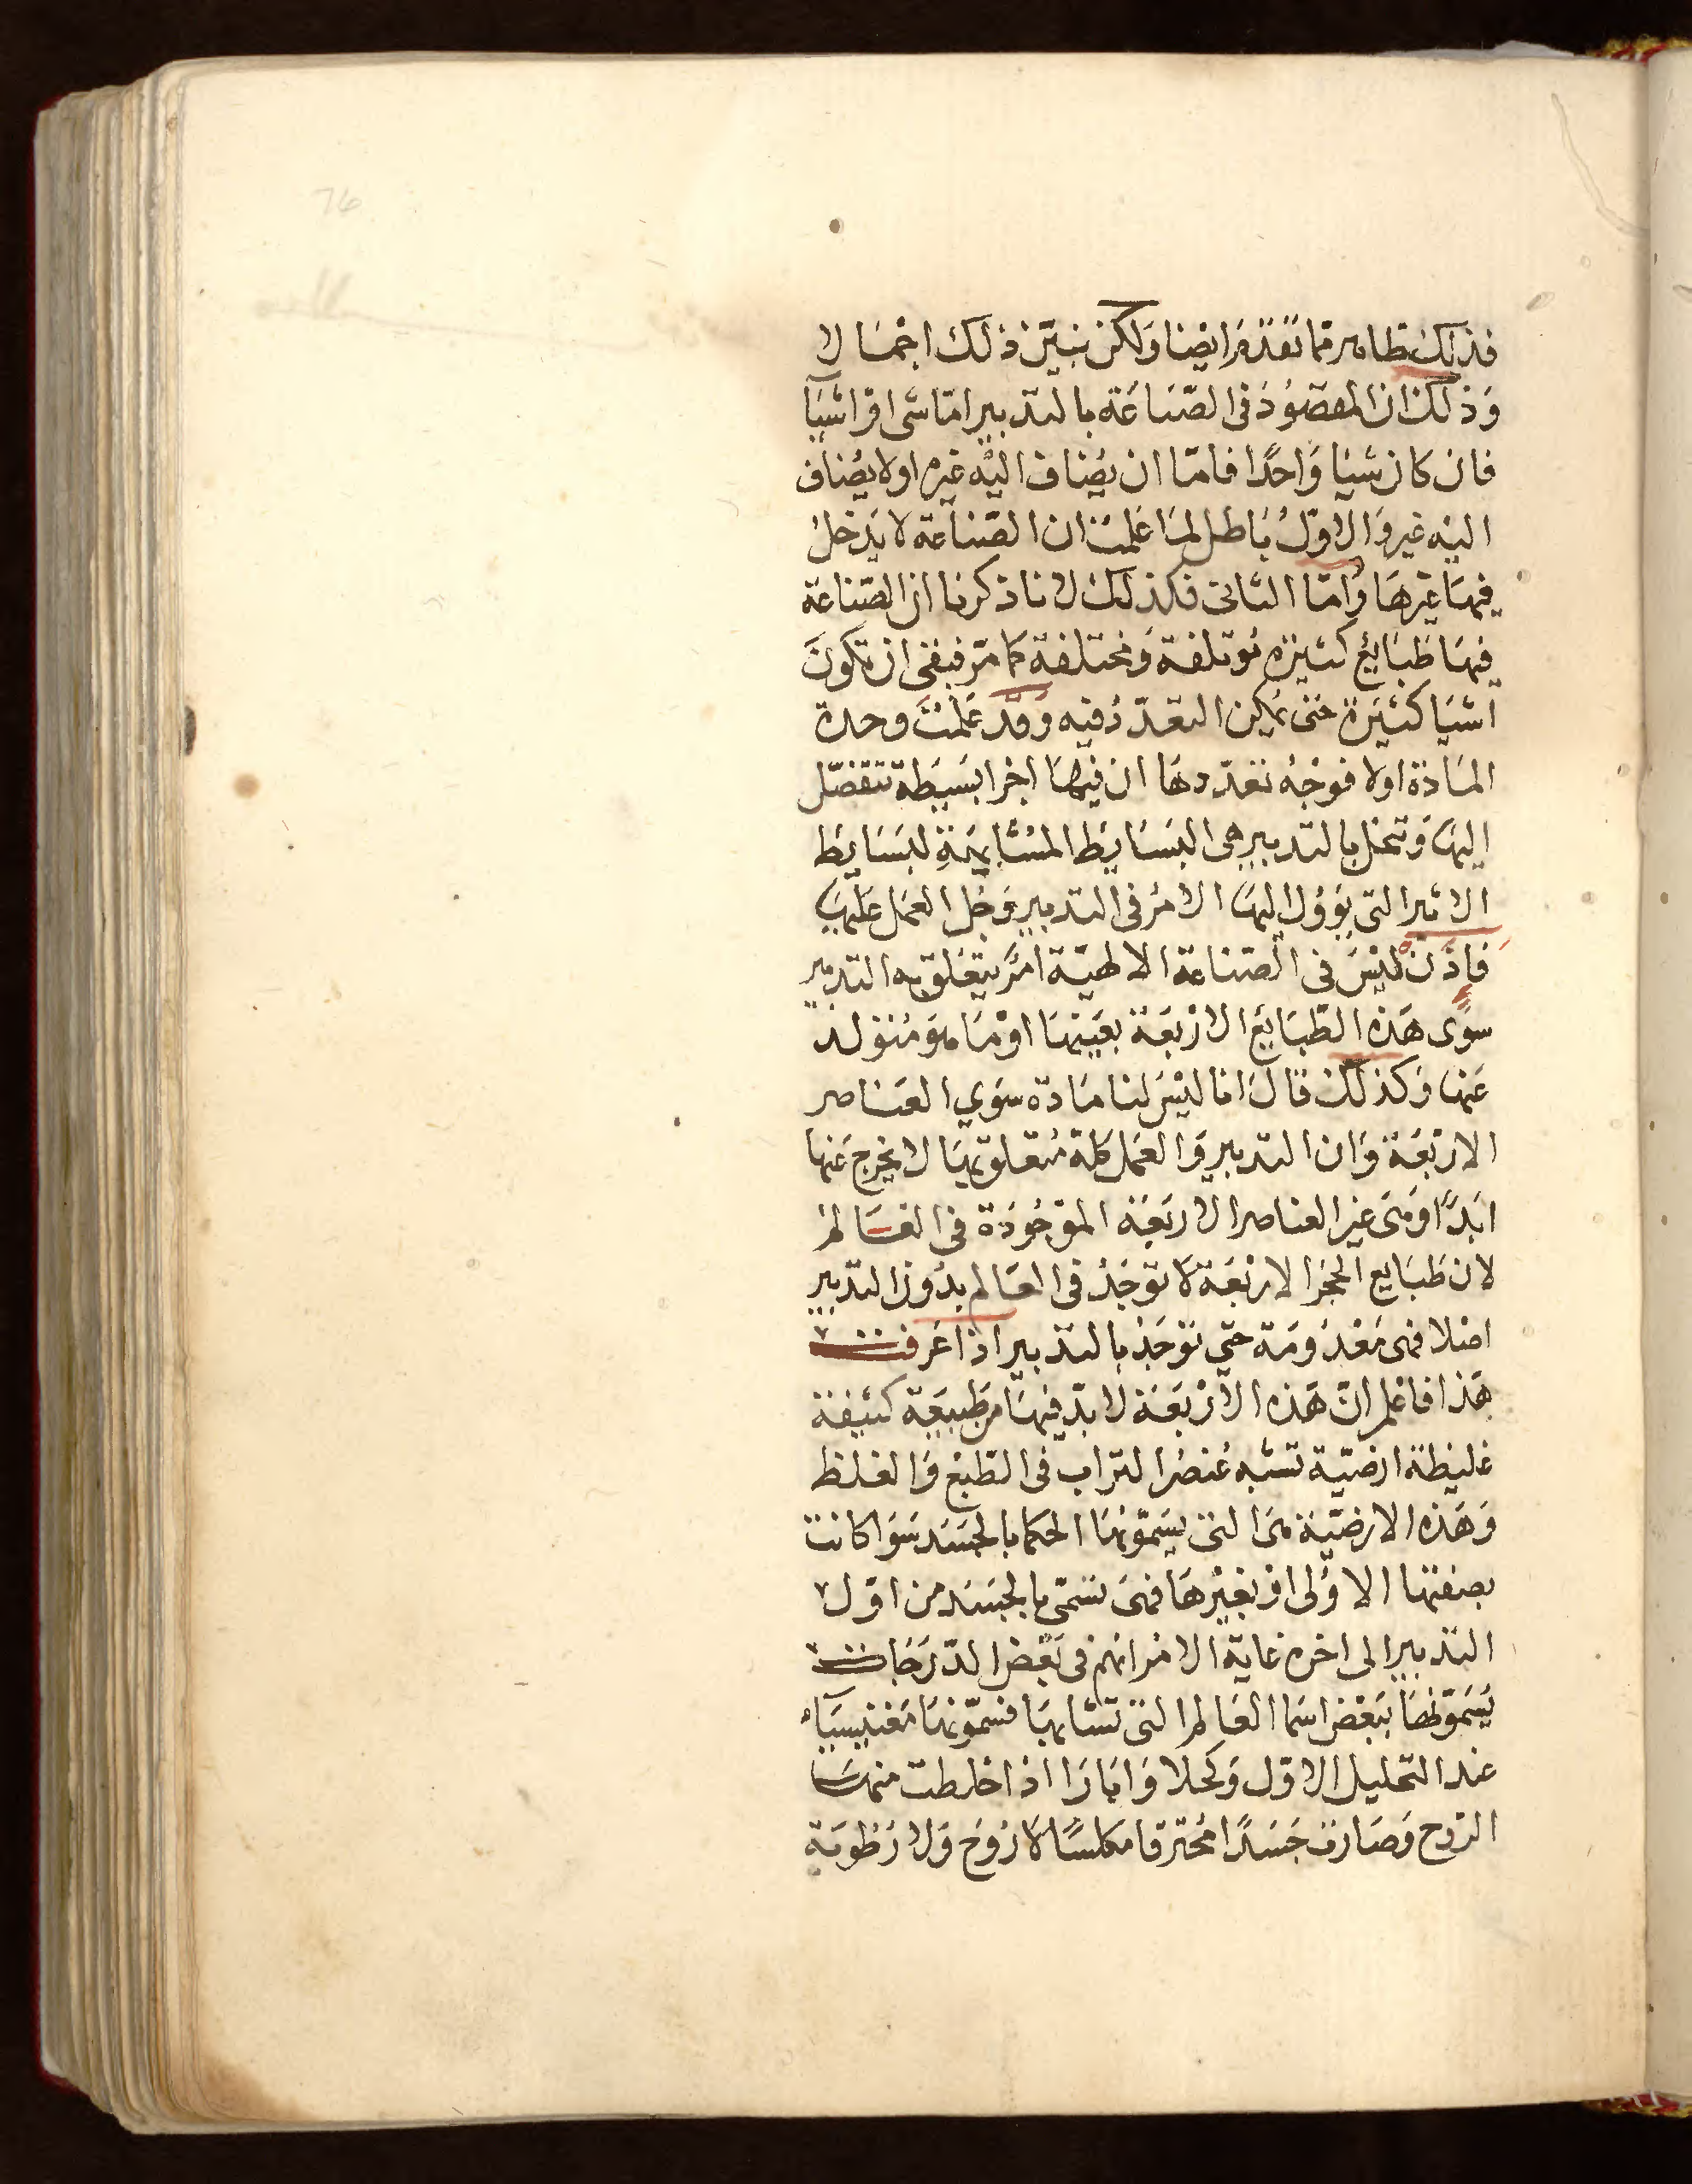 76
فذلك ظاهر مما تقدم ايضا ولكن نبين ذلك اجمالا
وذلك ان المقصود في الصناعة بالتدبير اما شى او اشيآ
فان كان شيا واحدا فاما ان يضاف اليه غيره او لا يضاف
اليه غير والاول باطل لما علمت ان الصناعة لا يدخل
فيها غيرها واما الثانى فكذلك لانا ذكرنا ان الصناعة
فيها طبائع كثيرة موتلفة ومختلفة كما مر فبقى ان تكون
اشيا كثيرة حتى يمكن التعدد فيه وقد علمت وحدة
المادة اولا فوجه تعددها ان فيها اجزا بسيطة تتفصل
اليها وتنحل بالتدبير هى البسايط المشابهة لبسايط
الاثير التى يؤول اليها الامر فى التدبير وجل العمل عليها
فاذن ليس فى الصناعة الالهية امر يتعلق به التدبير
سوى هذه الطبايع الاربعة بعينها او ما هو متولد
عنها وكذلك قال انا ليس لنا مادة سوي العناصر
الاربعة وان التدبير والعمل كله متعلق بها لا يخرج عنها
ابدا وهى غير العناصر الاربعة الموجودة فى العالم
لان طبايع الحجر الاربعة لا توجد فى العالم بدون التدبير
اصلا فهى معدومة حتي توجد بالتدبير اذا عرفت
هذا فاعلم ان هذه الاربعة لا بد فيها من طبيعة كثيفة
غليظة ارضية تشبه عنصر التراب فى الطبع والغلظ
وهذه الارضية هى التى يسمونها الحكما بالجسد سوا كانت
بصفتها الاولى او بغيرها فهى تسمى بالجسد من اول
التدبير الى اخره غاية الامر انهم فى بعض الدرجات
يسمونها ببعض اسما العالم التى تشابهها فسمونها مغنيسياء
عند التحليل الاول وكحلا وابارا اذا خلطت منها
الروح وصارت جسدا محترقا مكلسا لا روح ولا رطوبة